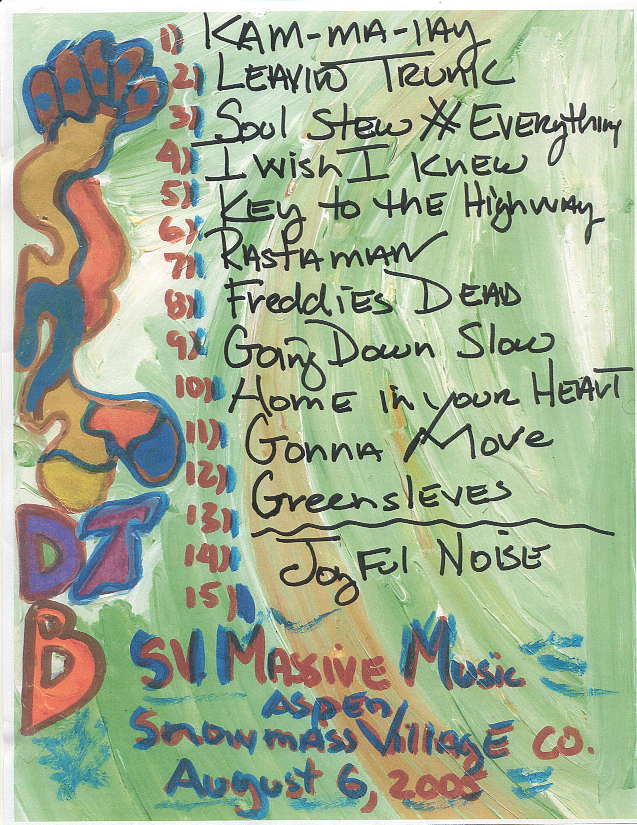 1) KAM-MA-LAY
2) LEAVIN TRUNK
3) SOUL STEW XX EVERYTHING
4) I WISH I KNEW
5) KEY TO THE HIGHWAY
6)
7) RASTAMAN
8) FREDDIES DEAD
9) GOING DOWN SLOW
10) HOME IN YOUR HEART
11) GONNA MOVE
12) GREENSLEVES
13)
14) JOYFUL NOISE
15)
DT
B
SV MASSIVE MUSIC
ASPEN/
SNOWMASS VILLAGE CO.
AUGUST 6, 2005